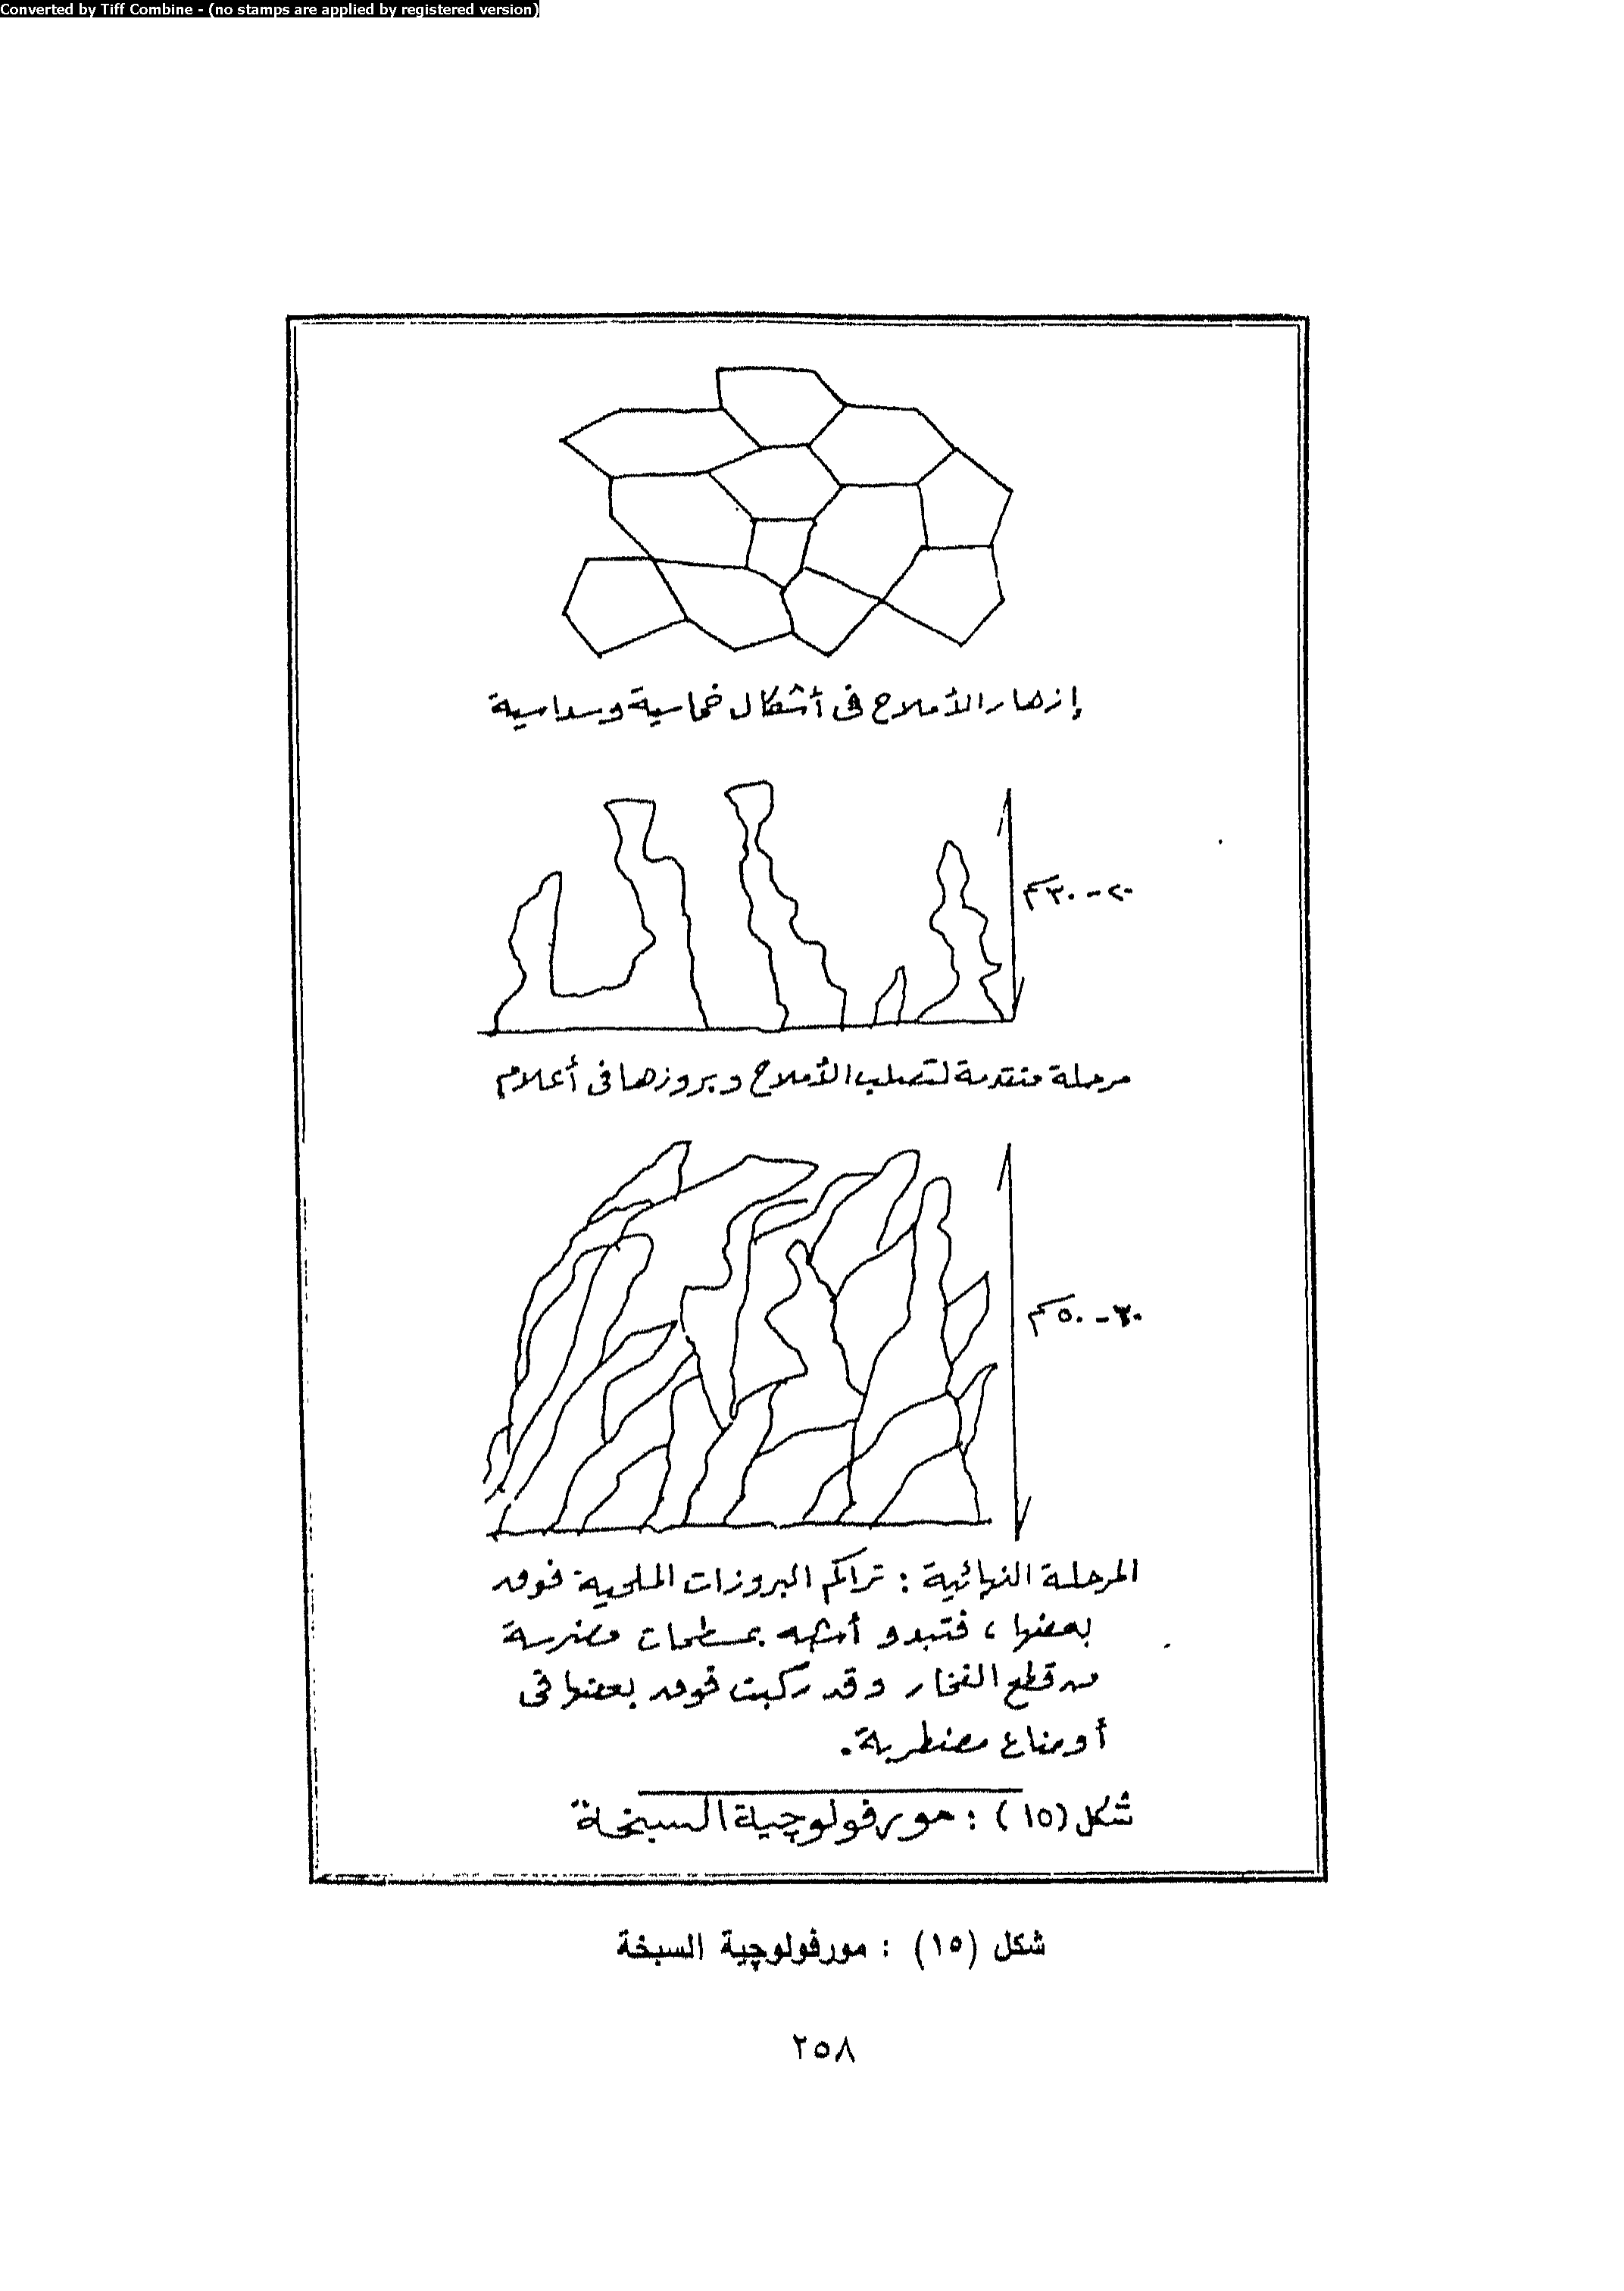 Converted by Tiff Combine - (no stamps are applied by registered version)
إزهار الأملاح فى أشكال خماسية وسداسية
٢٠ - ٣٠ سم
مرحلة متقدمة لتصلب الأملاح وبروزها فى أعلام
٣٠ - ٥٠ سم
المرحلة النهائية : تراكم البروزات الملحية فوق
بعضها ، فتبدو أشبه بمسطحات مضرسة
من قطع الفخار وقد ركبت فوق بعضها فى
أوضاع مضطربة .
شكل (١٥) : مورفولوچية السبخة
شكل (١٥) : مورفولوچية السبخة
٢٥٨